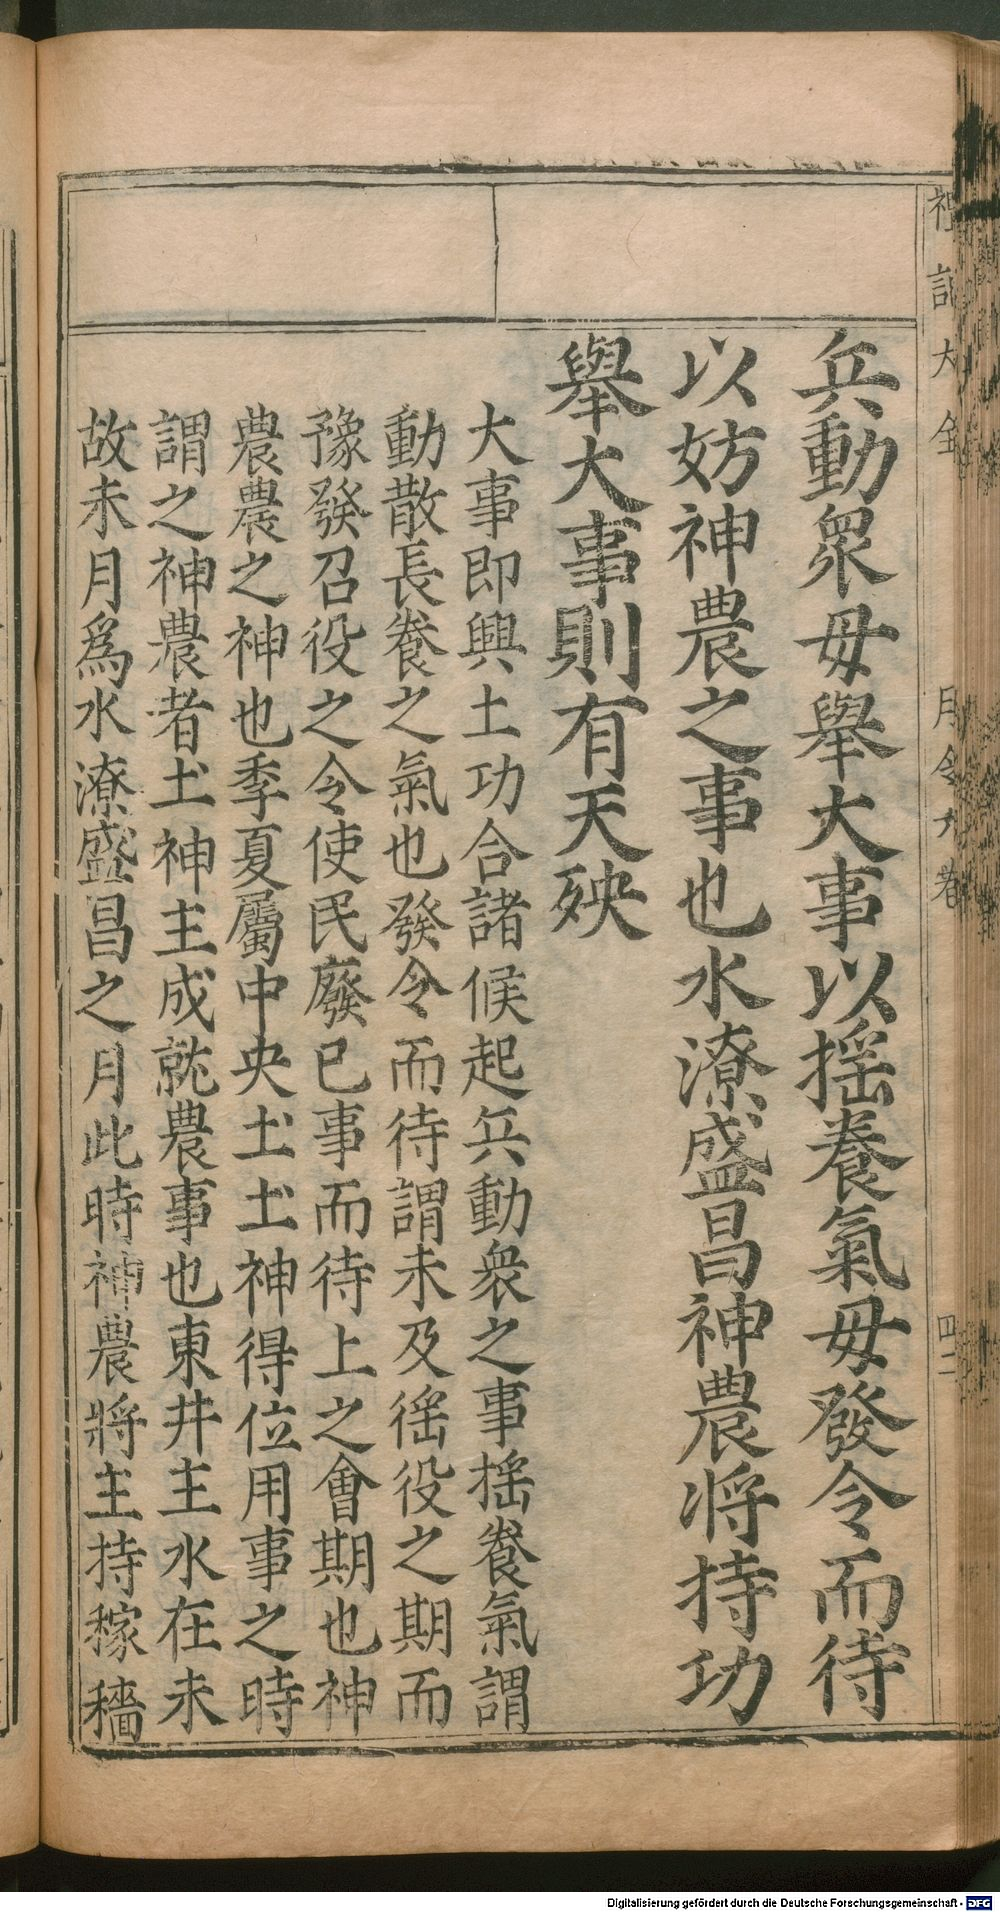 禮記大全 月令九卷 四二
兵動衆毋舉大事以搖養氣毋發令而待
以妨神農之事也水潦盛昌神農將持功
舉大事則有天殃
大事即興土功合諸候起兵動衆之事搖養氣謂
動散長養之氣也發令而待謂未及徭役之期而
豫發召役之令使民廢已事而待上之會期也神
農農之神也季夏屬中央土土神得位用事之時
謂之神農者土神主成就農事也東井主水在未
故未月爲水潦盛昌之月此時神農將主持稼穡
Digitalisierung gefördert durch die Deutsche Forschungsgemeinschaft - DFG